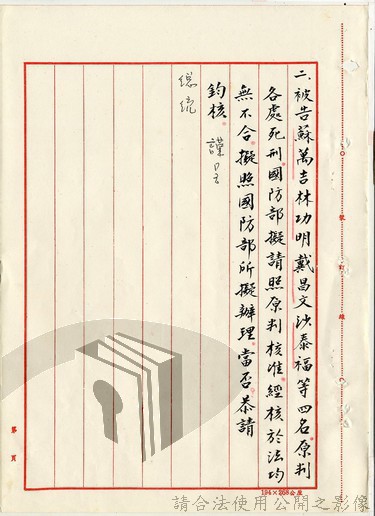 二、被告蘇萬吉林功明戴昌文沙泰福等四名。原判
各處死刑。國防部擬請照原判核准。經核於法均
無不合。擬照國防部所擬辦理。當否。恭請
鈞核。謹呈
總統
裝訂線
第 頁
194×268公厘
請合法使用公開之影像